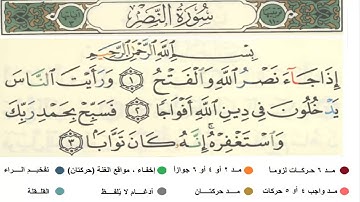 سُورَةُ النَّصْرِ
بِسْمِ اللَّهِ الرَّحْمَٰنِ الرَّحِيمِ
إِذَا جَاءَ نَصْرُ اللَّهِ وَالْفَتْحُ ١ وَرَأَيْتَ النَّاسَ
يَدْخُلُونَ فِي دِينِ اللَّهِ أَفْوَاجًا ٢ فَسَبِّحْ بِحَمْدِ رَبِّكَ
وَاسْتَغْفِرْهُ إِنَّهُ كَانَ تَوَّابًا ٣
مد ٦ حركات لزوما مد ٢ أو ٤ أو ٦ جوازاً إخفاء، ومواقع الغنة (حركتان) تفخيم الراء
مد واجب ٤ أو ٥ حركات مد حركتان إدغام، وما لا يلفظ القلقلة